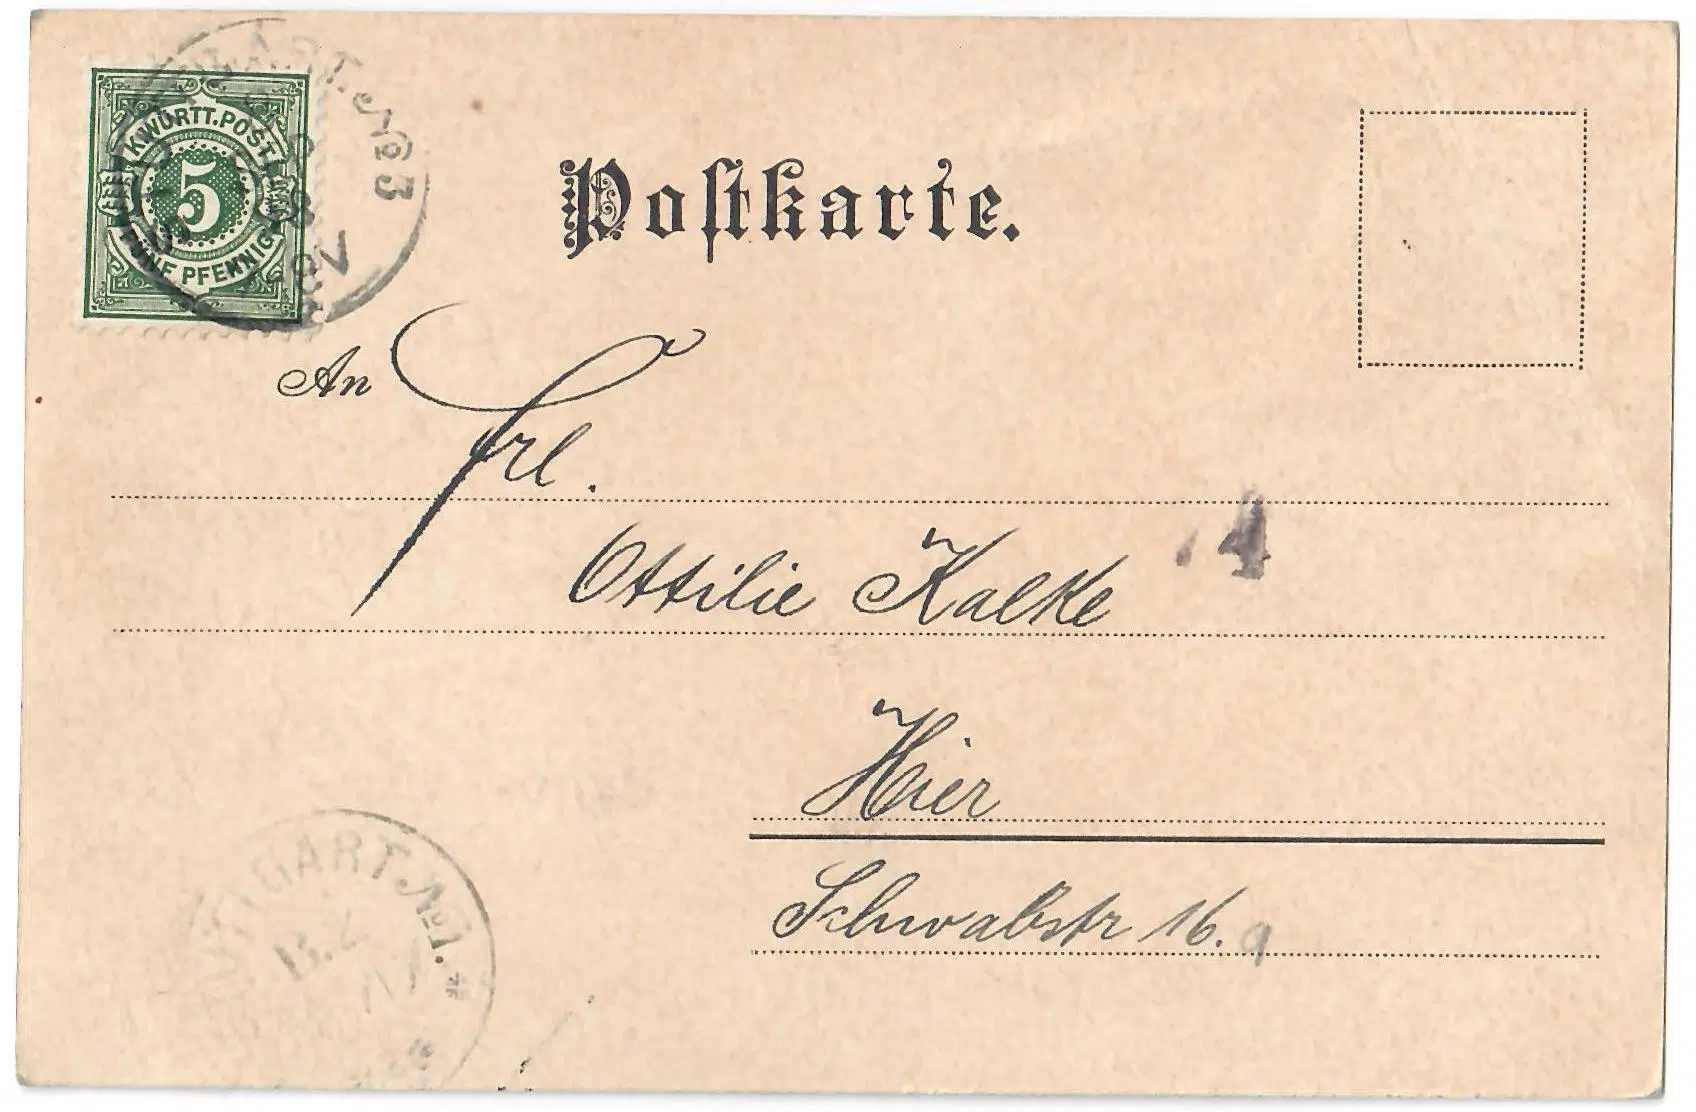 K.WÜRTT.POST
5
FÜNF PFENNIG
No 3
Postkarte.
An
Frl.
Ottilie Kalke
4
Hier
Schwabstr 16.
STUTTGART. No 1. *